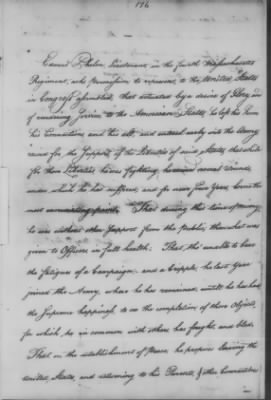 176
Edward Phelon, Lieutenant in the fourth Massachusetts
Regiment, asks Permission to represent, to the United States
in Congress assembled, that actuated by a desire of Glory, and
of rendering Service to the American States, he left his Home
his Connections, and his all, and entered early into the Army
raised for the Support of the Liberties of said States, that while
for these Liberties, he was fighting, he received several Wounds
under which he has suffered, and for near four Years, born the
most excruciating pains. That during this time of misery,
he was without other Support from the public, than what was
given to Officers in full health. That tho' unable to bear
the fatigue of a Campaign, and a Cripple, he last Year
joined the Army, where he has remained, until he has had
the Supreme happiness, to see the completion of those Objects,
for which, he in common with others has fought, and bled.
That on the establishment of Peace he proposes leaving the
United States, and returning to his Parents, & other Connections